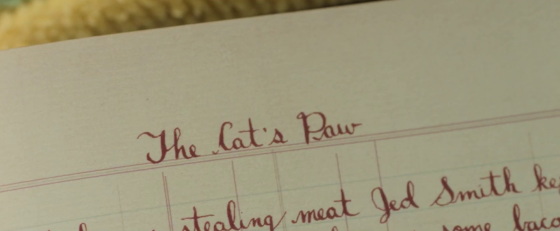 The Cat's Paw
stealing meat Jed Smith
some